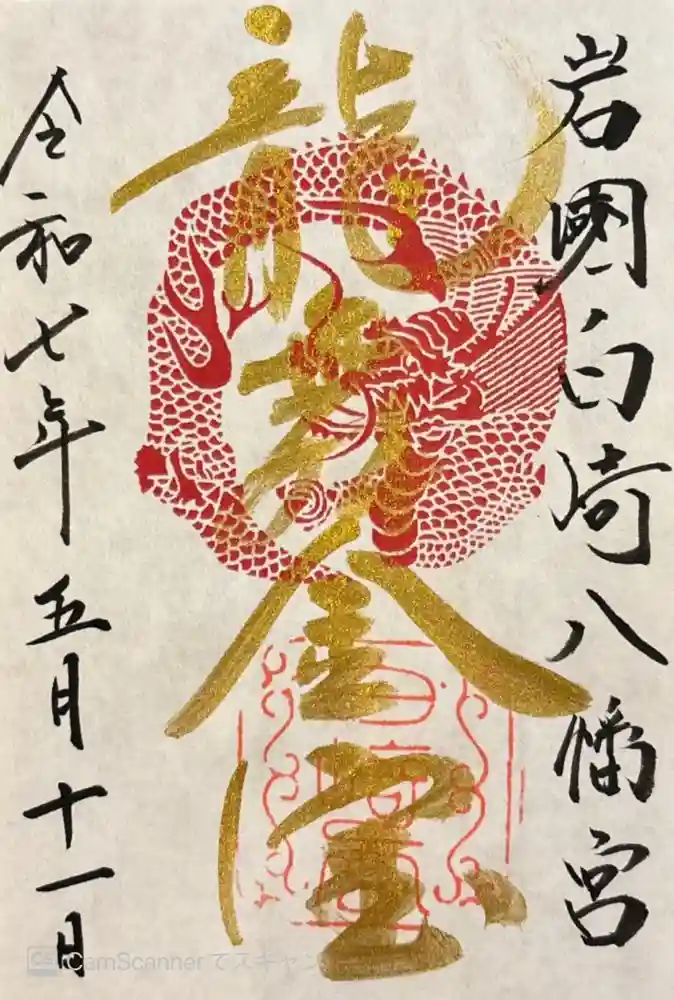 岩國白崎八幡宮
龍神金宝
令和七年五月十一日
CS CamScanner でスキャン